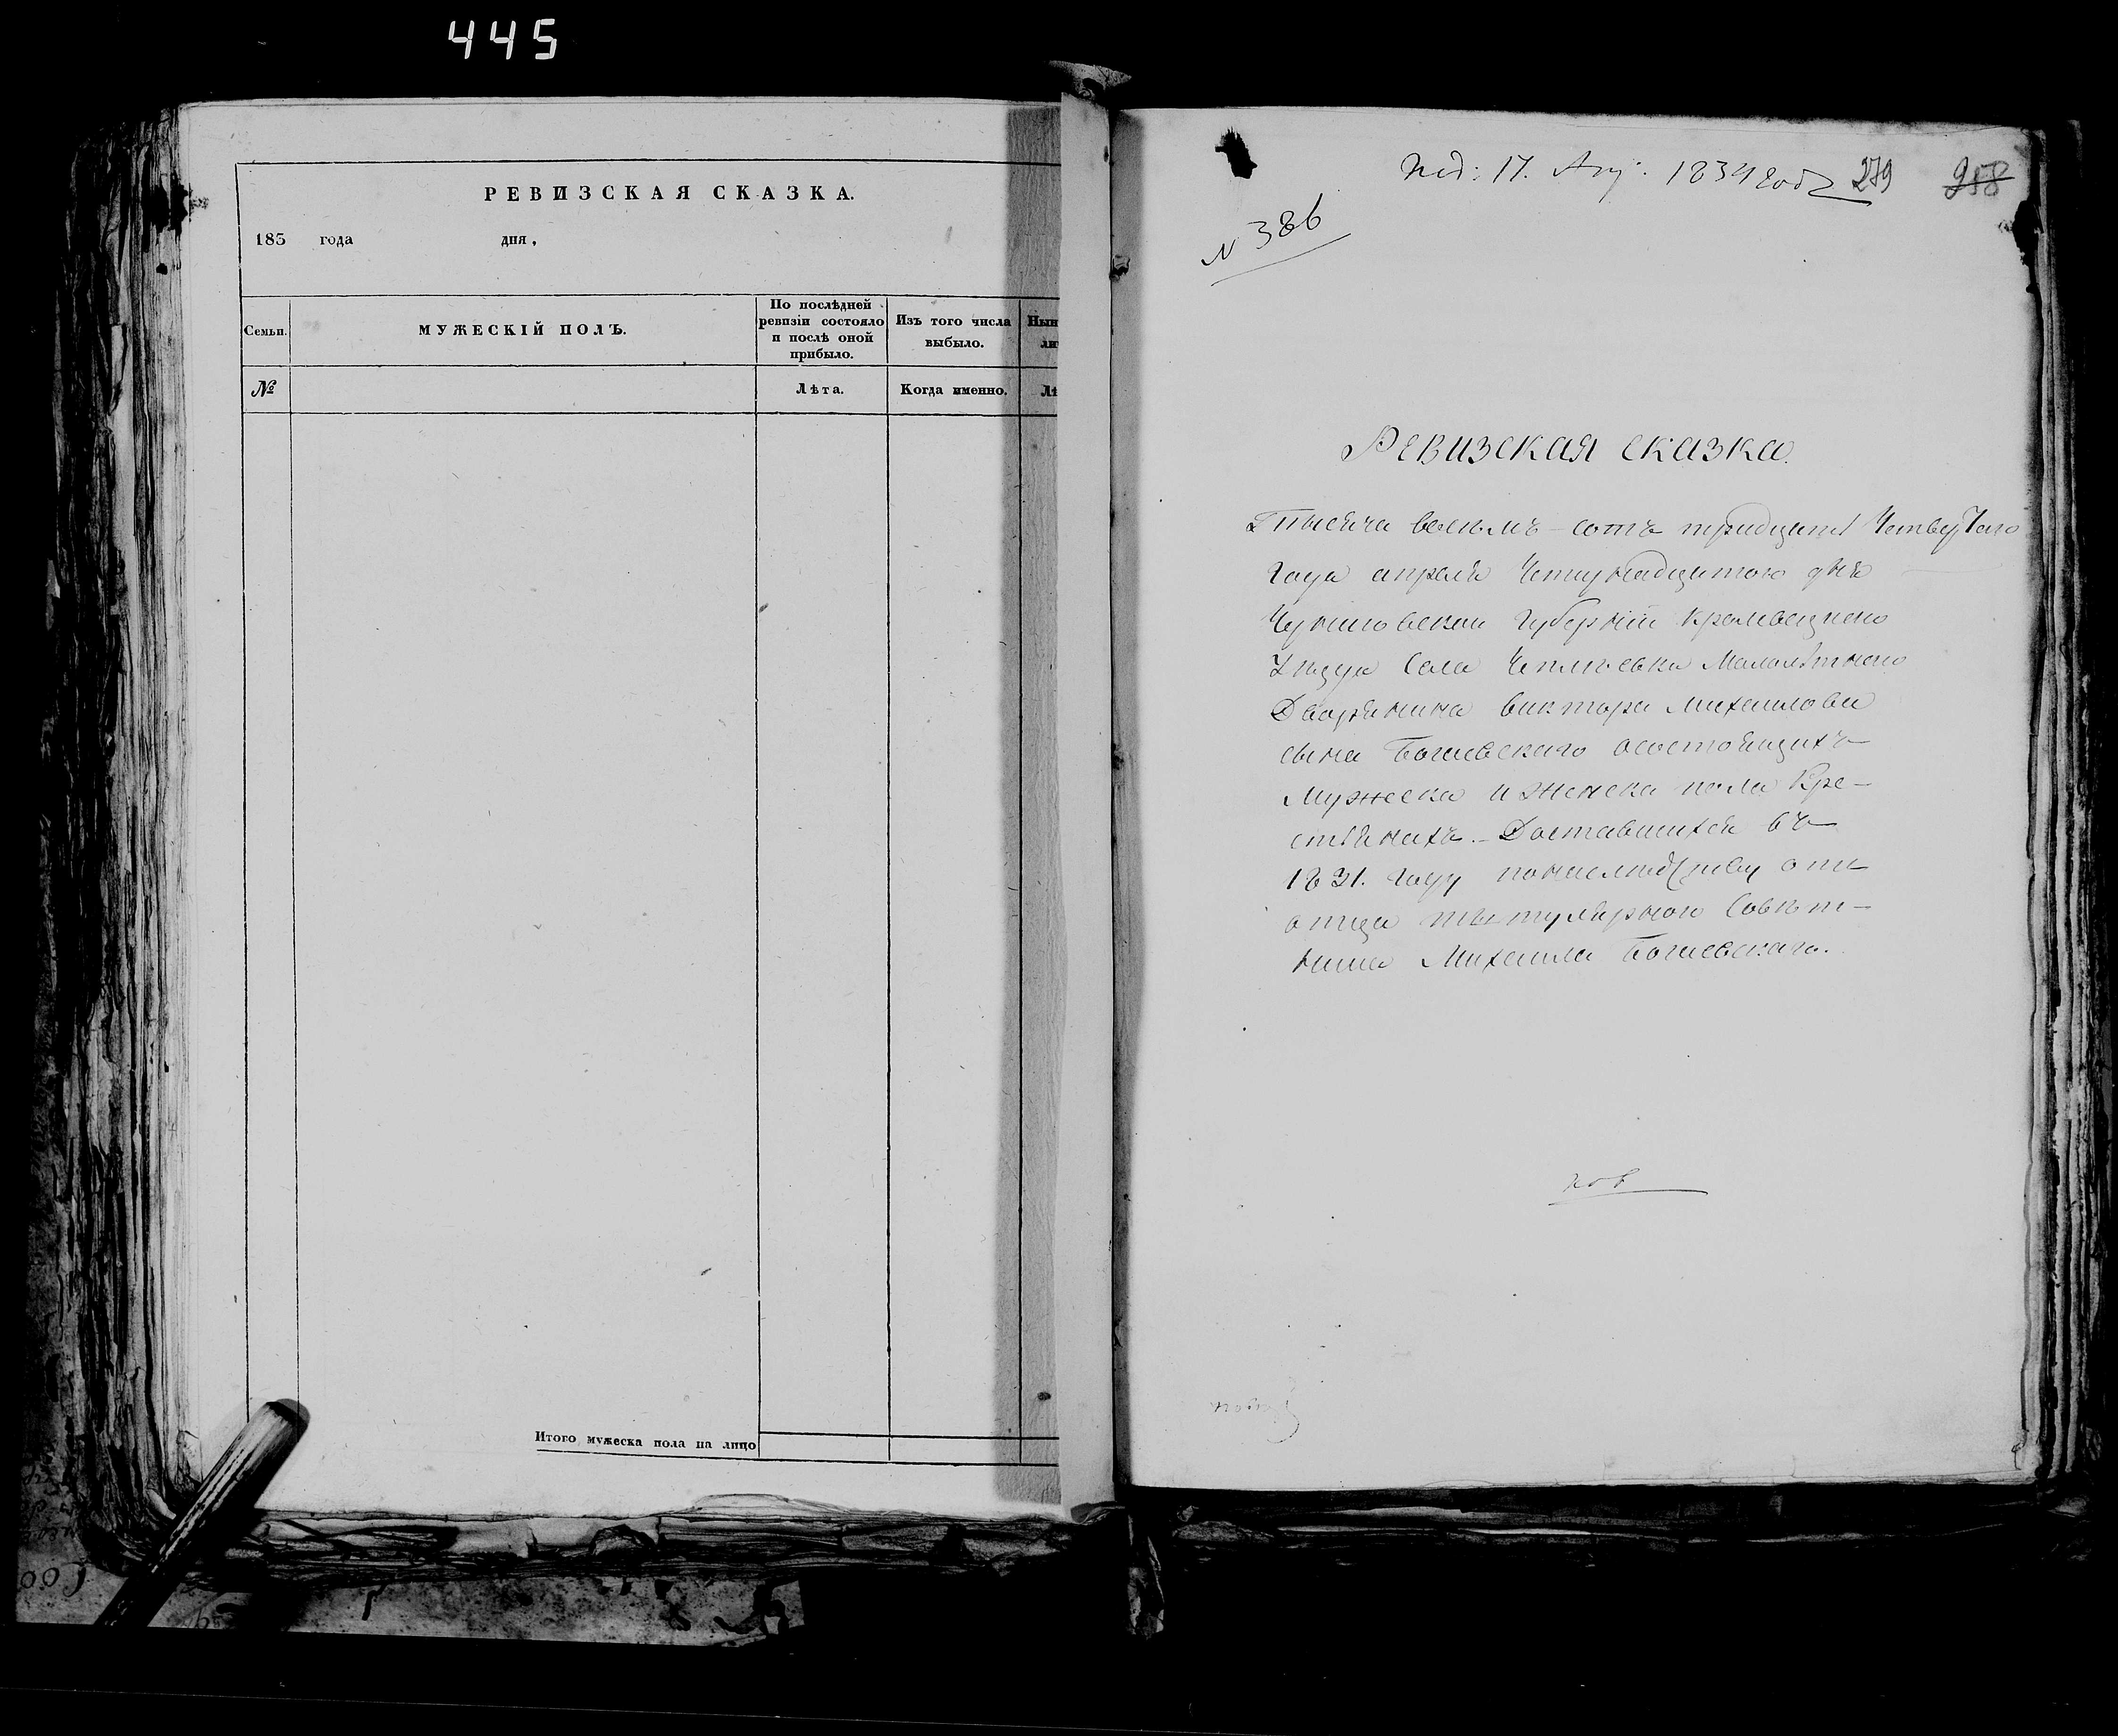 445
РЕВИЗСКАЯ СКАЗКА.
185 года дня,
Семьи.
МУЖЕСКІЙ ПОЛЪ.
По послѣдней ревизіи состояло и послѣ оной прибыло.
Изъ того числа выбыло.
№
Лѣта.
Когда именно.
Итого мужеска пола на лицо
Под: 17. Апр: 1834 года 279 958
N 386
Ревизская сказка.
Тысяча восемъ-сотъ тридцать Четвертаго
Года апреля Четырнадцатого дня
Черниговской Губерній Кролевецкого
Уезда Села Чеплѣевки Малолѣтного
Дворянина Виктора Михайлова
сына Богаевскаго осостоящихъ
Мужеска и женска пола Кре-
стьянахъ. Доставшихся въ
1831. Году понаследству отъ
отца титулярного Совѣт-
ника Михаила Богаевскаго.